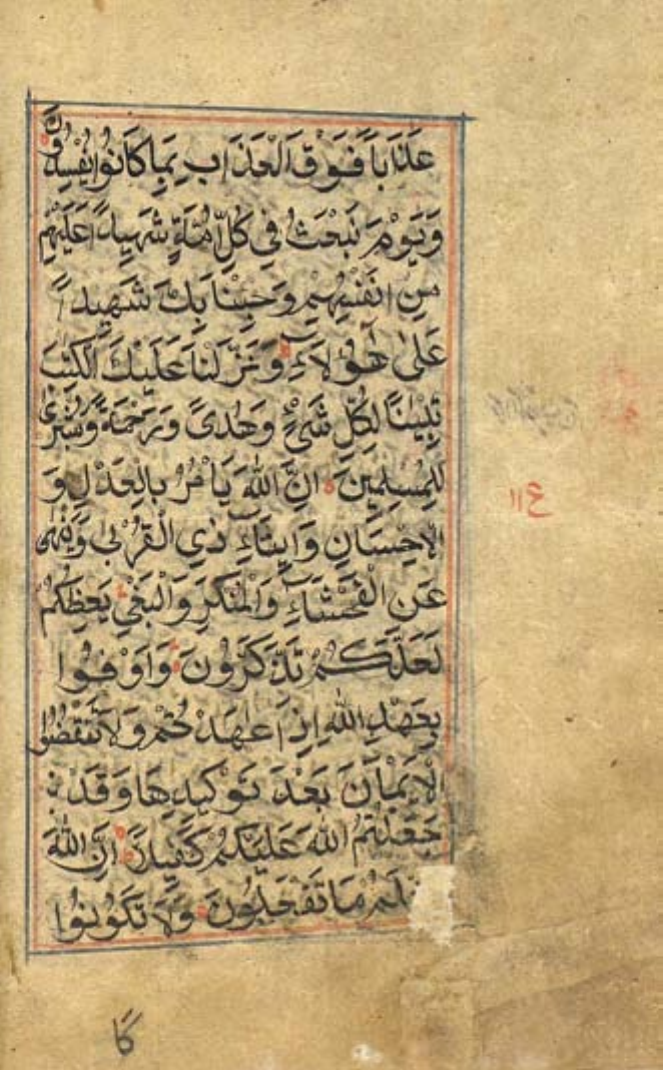 عَذَاباً فَوْقَ الْعَذَابِ بِمَا كَانُوا يُفْسِدُونَ
وَيَوْمَ نَبْعَثُ فِى كُلِّ اُمَّةٍ شَهِيداً عَلَيْهِمْ
مِنْ اَنْفُسِهِمْ وَجِئْنَا بِكَ شَهِيداً
عَلىٰ هٰؤُلَاءِ وَنَزَّلْنَا عَلَيْكَ الْكِتٰبَ
تِبْيَاناً لِكُلِّ شَىْءٍ وَهُدىً وَرَحْمَةً وَبُشْرىٰ
لِلْمُسْلِمِينَ اِنَّ اللهَ يَاْمُرُ بِالْعَدْلِ وَ
الْاِحْسَانِ وَاِيتَاءِ ذِى الْقُرْبىٰ وَيَنْهىٰ
عَنِ الْفَحْشَاءِ وَالْمُنْكَرِ وَالْبَغْىِ يَعِظُكُمْ
لَعَلَّكُمْ تَذَكَّرُونَ وَاَوْفُوا
بِعَهْدِ اللهِ اِذَا عٰهَدْتُمْ وَلَا تَنْقُضُوا
الْاَيْمَانَ بَعْدَ تَوْكِيدِهَا وَقَدْ
جَعَلْتُمُ اللهَ عَلَيْكُمْ كَفِيلاً اِنَّ اللهَ
يَعْلَمُ مَا تَفْعَلُونَ وَلَا تَكُونُوا
كَا
ع ١١